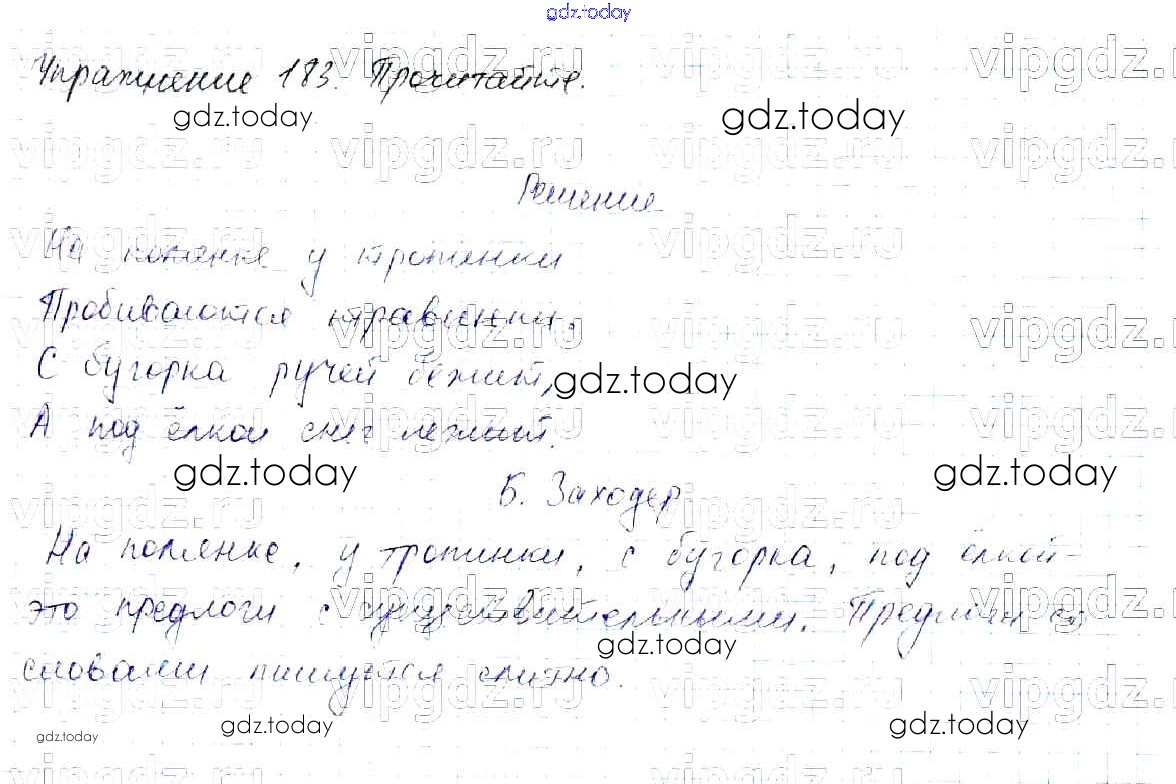 gdz.today
Упражнение 183. Прочитайте.
gdz.today gdz.today
Решение
На полянке у тропинки
Пробиваются травинки.
С бугорка ручей бежит,
gdz.today
А под ёлкой снег лежит.
gdz.today gdz.today
Б. Заходер
На полянке, у тропинки, с бугорка, под ёлкой -
это предлоги с существительными. Предлоги со
gdz.today
словами пишутся слитно.
gdz.today gdz.today
gdz.today